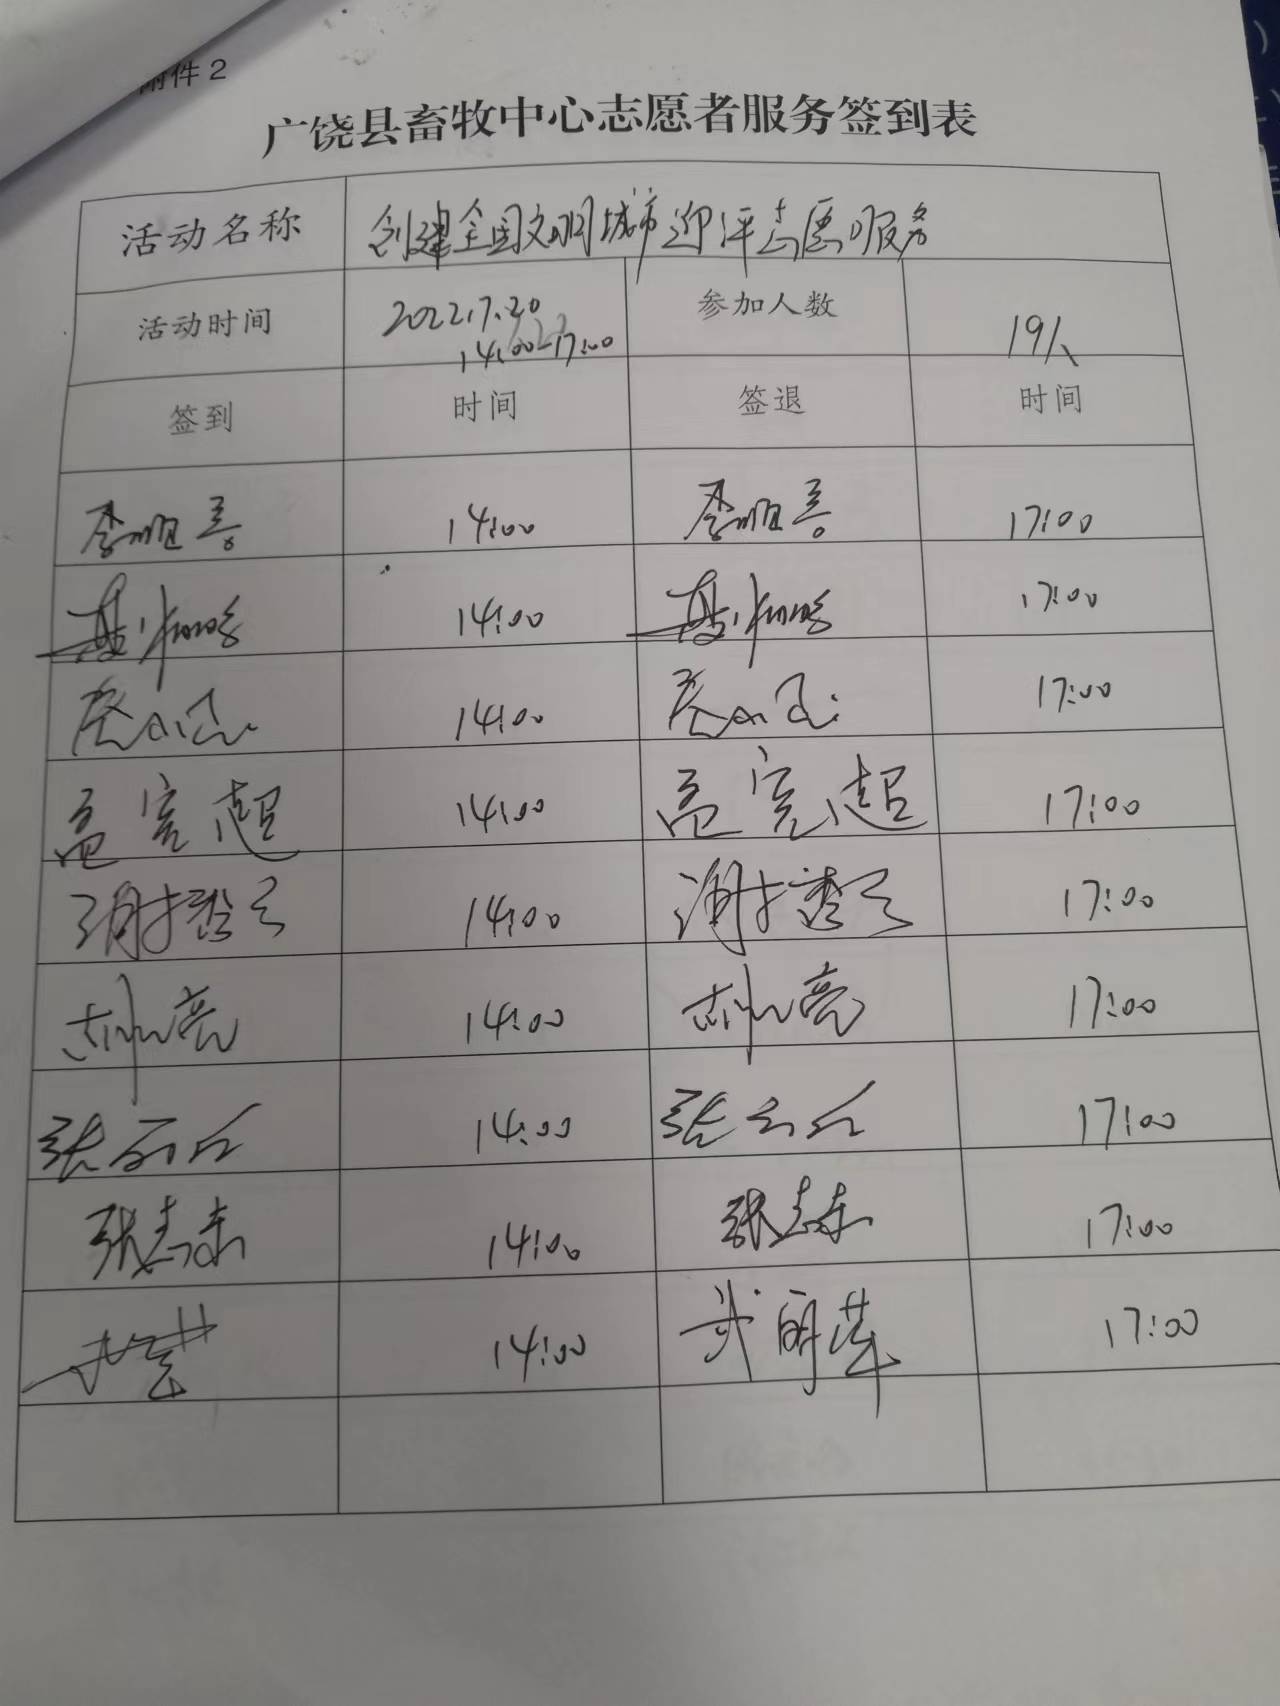 附件2
广饶县畜牧中心志愿者服务签到表
活动名称 创建全国文明城市迎评志愿服务
活动时间 2022.7.20 14:00-17:00 参加人数 19人
签到 时间 签退 时间
李顺善 14:00 李顺善 17:00
14:00 17:00
14:00 17:00
孟宪超 14:00 孟宪超 17:00
14:00 17:00
14:00 17:00
14:00 17:00
张志东 14:00 张志东 17:00
14:00 武明萍 17:00